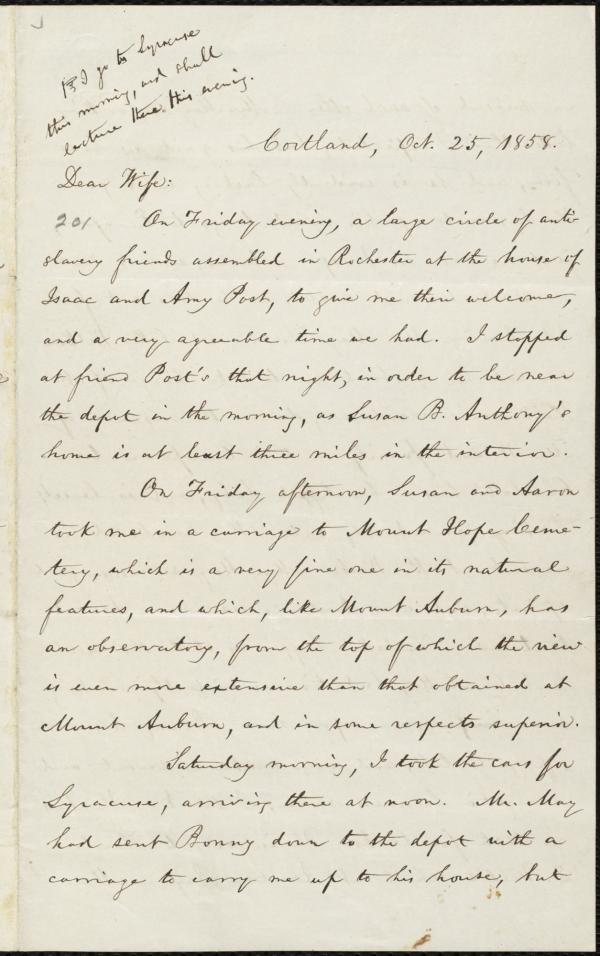 I go to Syracuse
this morning, and shall
lecture there this evening.
Cortland, Oct. 25, 1858.
Dear Wife:
201
On Friday evening, a large circle of anti-
slavery friends assembled in Rochester at the house of
Isaac and Amy Post, to give me their welcome,
and a very agreeable time we had. I stopped
at friend Post's that night, in order to be near
the depot in the morning, as Susan B. Anthony's
home is at least three miles in the interior.
On Friday afternoon, Susan and Aaron
took me in a carriage to Mount Hope Ceme-
tery, which is a very fine one in its natural
features, and which, like Mount Auburn, has
an observatory, from the top of which the view
is even more extensive than that obtained at
Mount Auburn, and in some respects superior.
Saturday morning, I took the cars for
Syracuse, arriving there at noon. Mr. May
had sent Bonny down to the depot with a
carriage to carry me up to his house, but